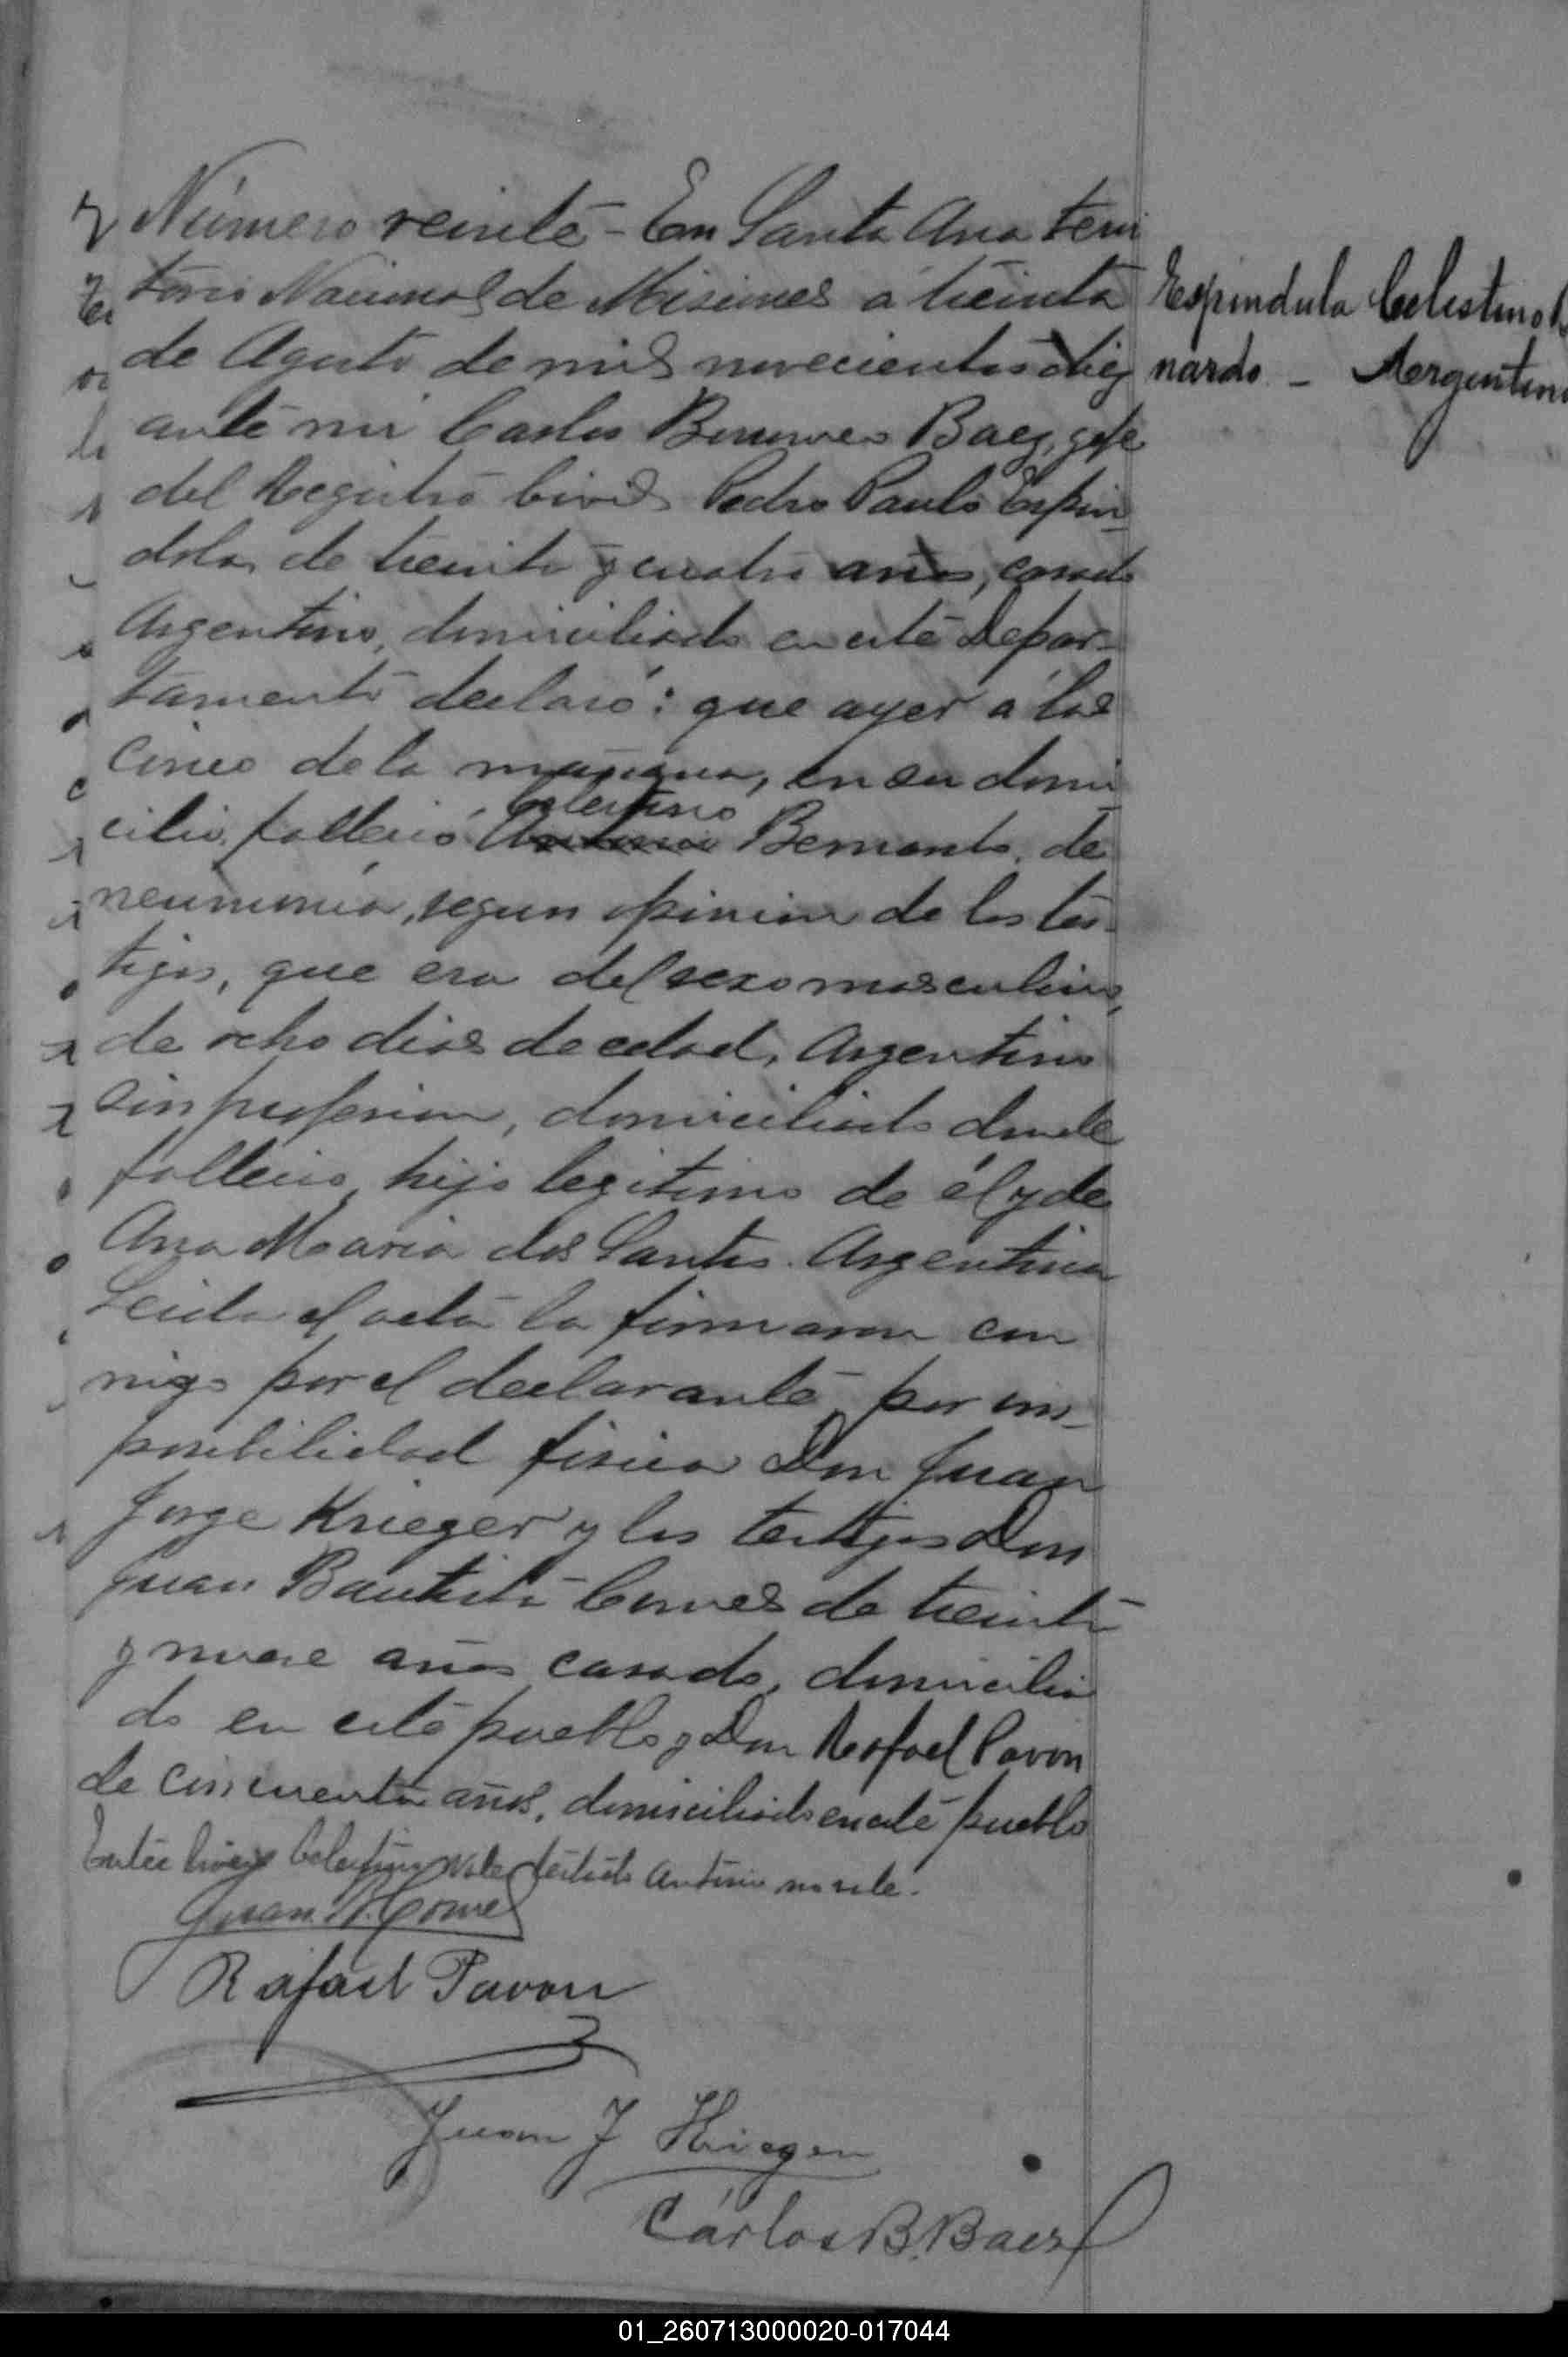 Número veinte - En Santa Ana terri
torio Nacional de Misiones á treinta
de Agosto de mil novecientos diez
ante mi Carlos Borromeo Baez, gefe
del Registro Civil Pedro Paulo Espin-
dola, de treinta y cuatro años, casado
Argentino, domiciliado en este Depar-
tamento declaró: que ayer á las
cinco de la mañana, en su domi
Celestino
cilio, falleció Antonio Bernardo, de
neumonia, segun opinion de los tes-
tigos, que era del sexo masculino,
de ocho dias de edad, Argentino
sin profesion, domiciliado donde
falleció, hijo legitimo de él y de
Ana Maria dos Santos. Argentina
Leida el acta la firmaron con
migo por el declarante por im-
posibilidad fisica Don Juan
Jorge Krieger y los testigos Don
Juan Bautista Comes de treinta
y nueve años casado, domicilia
do en este pueblo y Don Rafael Pavon
de cincuenta años, domiciliado en este pueblo
Entre lineas Celestino Vale testado Antonio no vale.
Juan B. Comes
Rafael Pavon
Juan J Krieger
Cárlos B. Baez
Espindula Celestino
nardo - Argentino
01_260713000020-017044